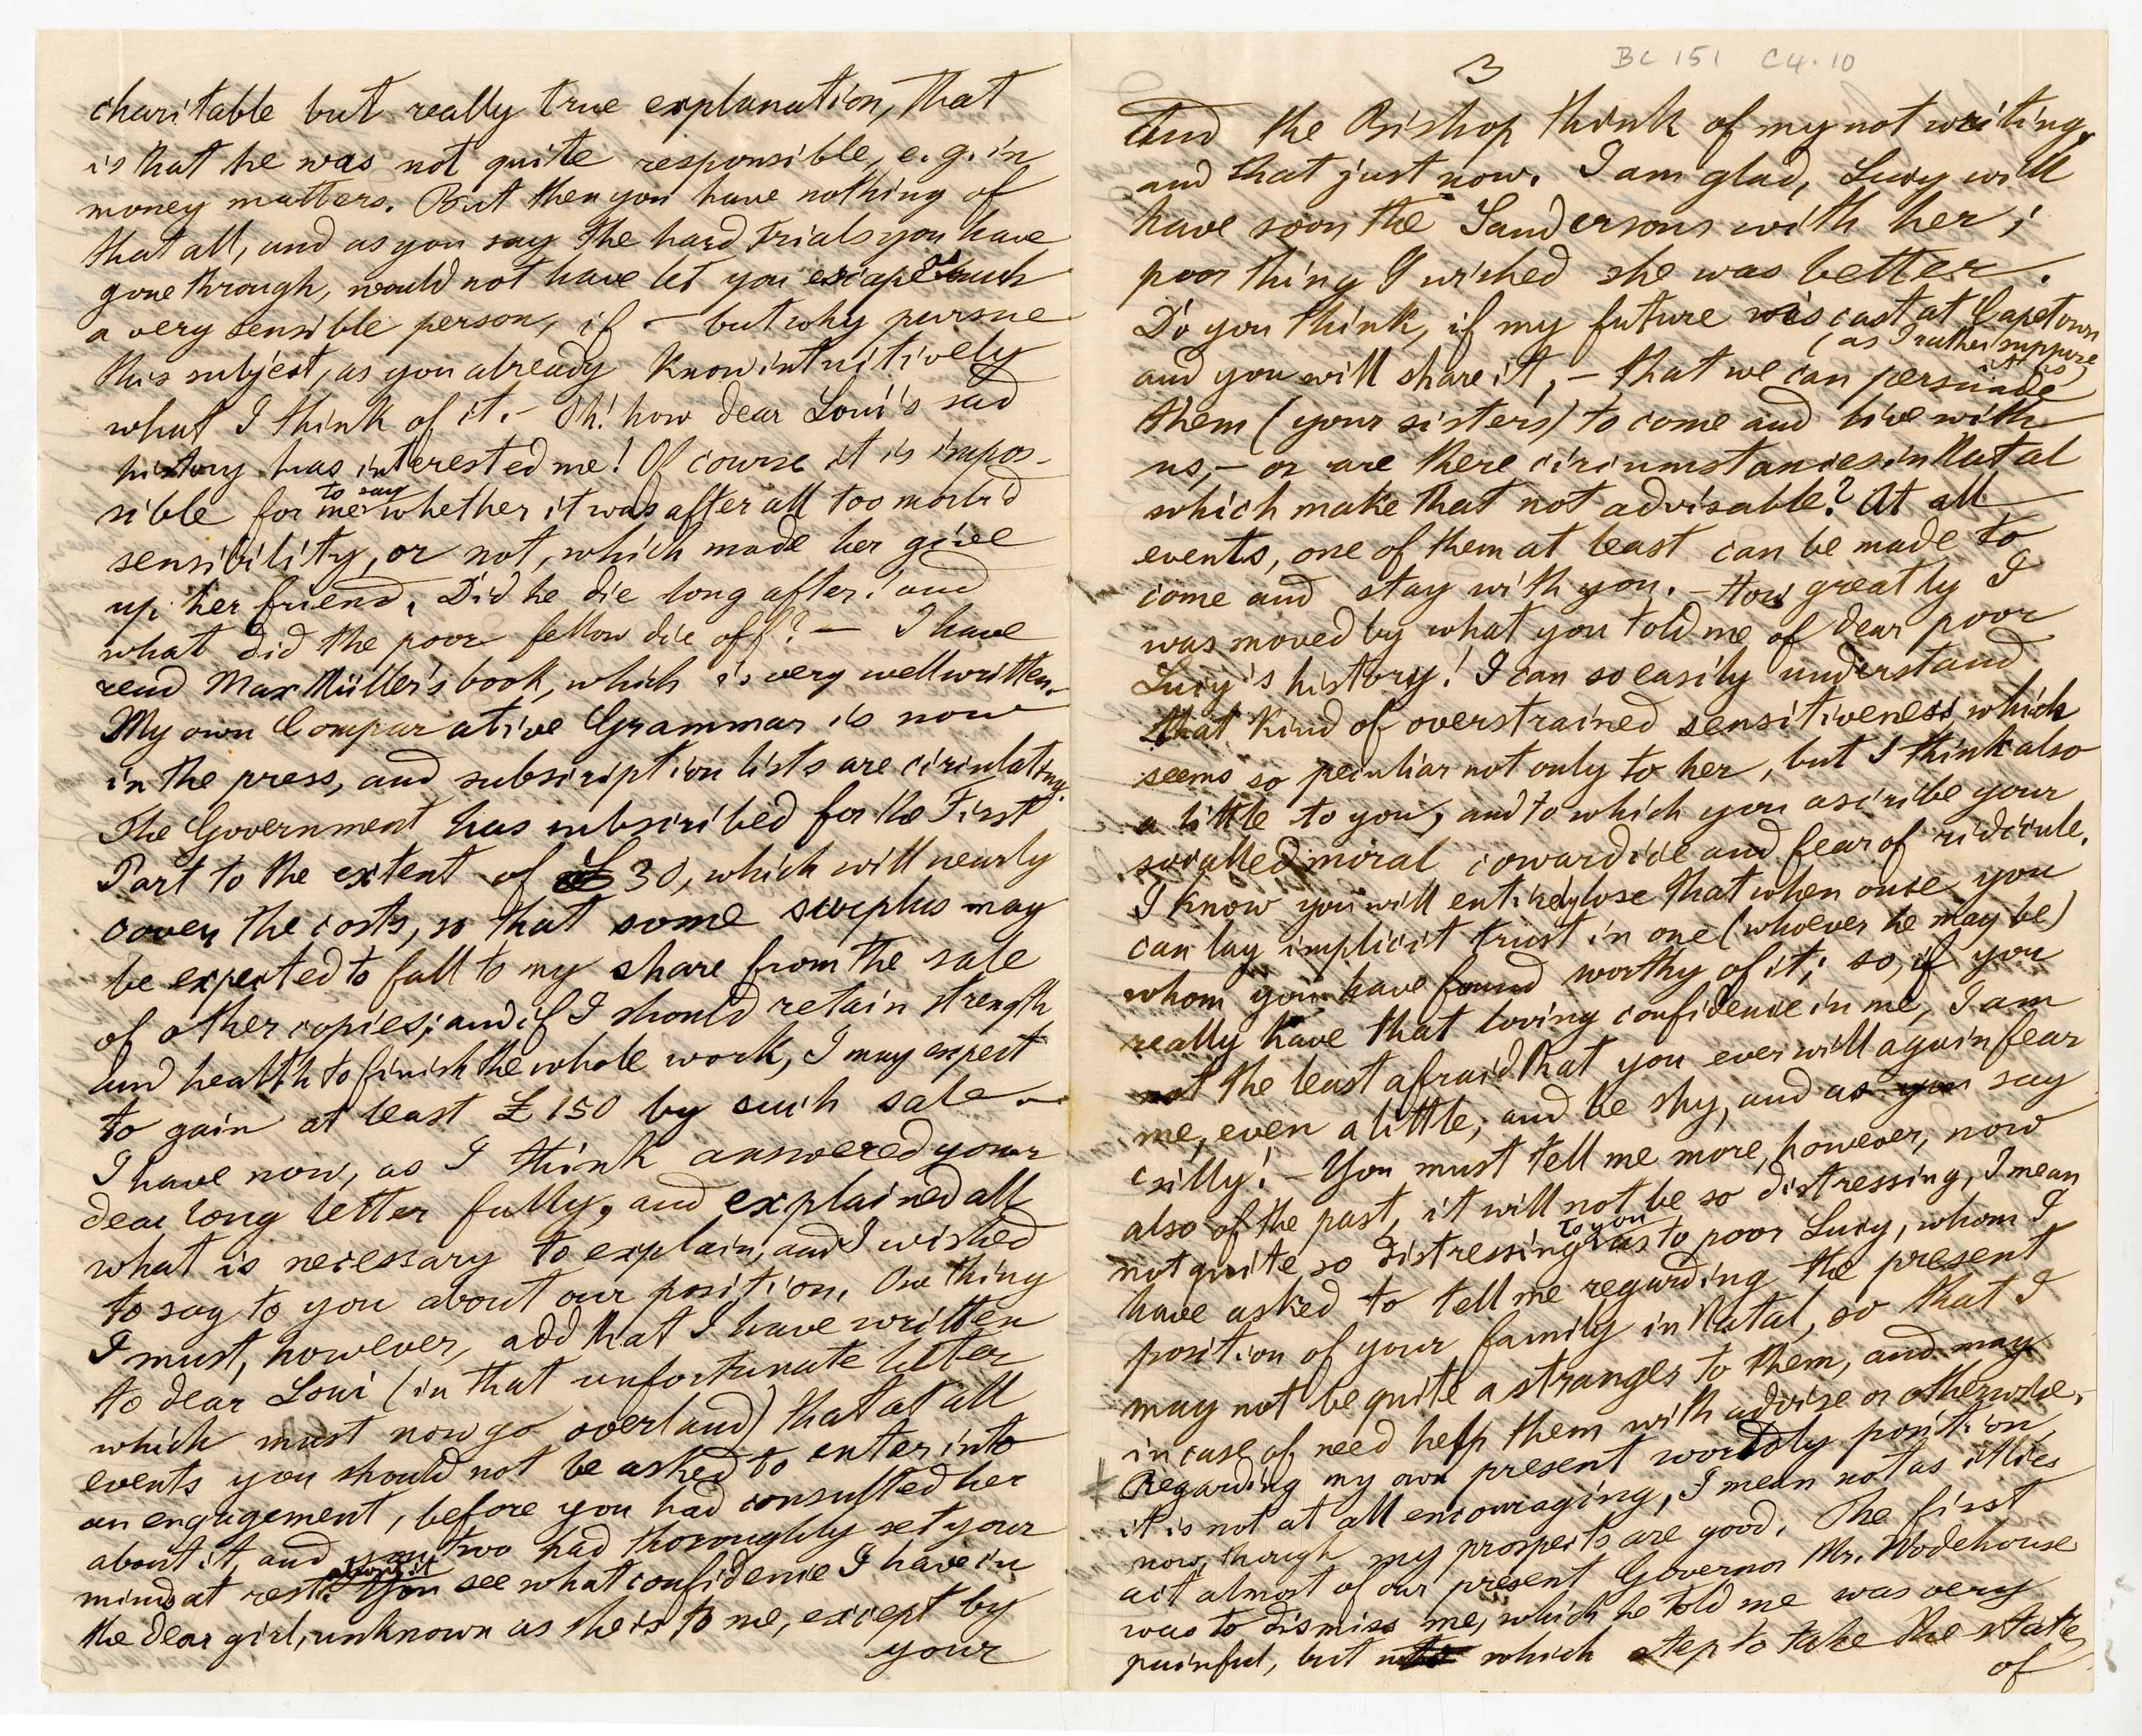 charitable but really true explanation, that
is that he was not quite responsible, e.g. in
money matters. But then you have nothing of
that all, and as you say the hard trials you have
gone through, would not have let you escape as such
a very sensible person, if — but why pursue
this subject, as you already know intuitively
what I think of it. – Oh! how dear Loui's sad
history has interested me! Of course it is impos-
sible for me to say whether it was after all too morbid
sensibility, or not, which made her give
up her friend. Did he die long after? and
what did the poor fellow die off? — I have
read Max Müller's book, which is very well written.
My own Comparative Grammar is now
in the press, and subscription lists are circulating.
The Government has subscribed for the First
Part to the extent of £30, which will nearly
cover the costs, so that some surplus may
be expected to fall to my share from the sale
of other copies; and if I should retain strength
and health to finish the whole work, I may expect
to gain at least £150 by such sale. —
I have now, as I think answered your
dear long letter fully, and explained all
what is necessary to explain, and I wished
to say to you about our position. One thing
I must, however, add that I have written
to dear Loui (in that unfortunate letter
which must now go overland) that at all
events you should not be asked to enter into
an engagement, before you had consulted her
about it, and you two had thoroughly set your
mind at rest about it. You see what confidence I have in
the dear girl, unknown as she is to me, except by
your
BC 151 C4.10
3
and the Bishop think of my not writing,
and that just now. I am glad, Lucy will
have soon the Sandersons with her;
poor thing I wished she was better.
Do you think, if my future was cast at Capetown
(as I rather suppose it is)
and you will share it, – that we can persuade
them (your sisters) to come and live with
us, – or are there circumstances in Natal
which make that not advisable? At all
events, one of them at least can be made to
come and stay with you. – How greatly I
was moved by what you told me of dear poor
Lucy's history! I can so easily understand
that kind of overstrained sensitiveness which
seems so peculiar not only to her, but I think also
a little to you, and to which you ascribe your
socalled moral cowardice and fear of ridicule.
I know you will entirely lose that when once you
can lay implicit trust in one (whoever he may be)
whom you have found worthy of it; so, if you
really have that loving confidence in me, I am
not the least afraid that you ever will again fear
me, even a little, and be shy, and as you say
silly! – You must tell me more, however, now
also of the past, it will not be so distressing, I mean
not quite so distressing to you as to poor Lucy, whom I
have asked to tell me regarding the present
position of your family in Natal, so that I
may not be quite a stranger to them, and may
in case of need help them with advise or otherwise. –
Regarding my own present worldly position,
it is not at all encouraging, I mean not as it lies
now, though my prospects are good. The first
act almost of our present Governor Mr. Wodehouse
was to dismiss me, which he told me was very
painful, but which step to take the state
of